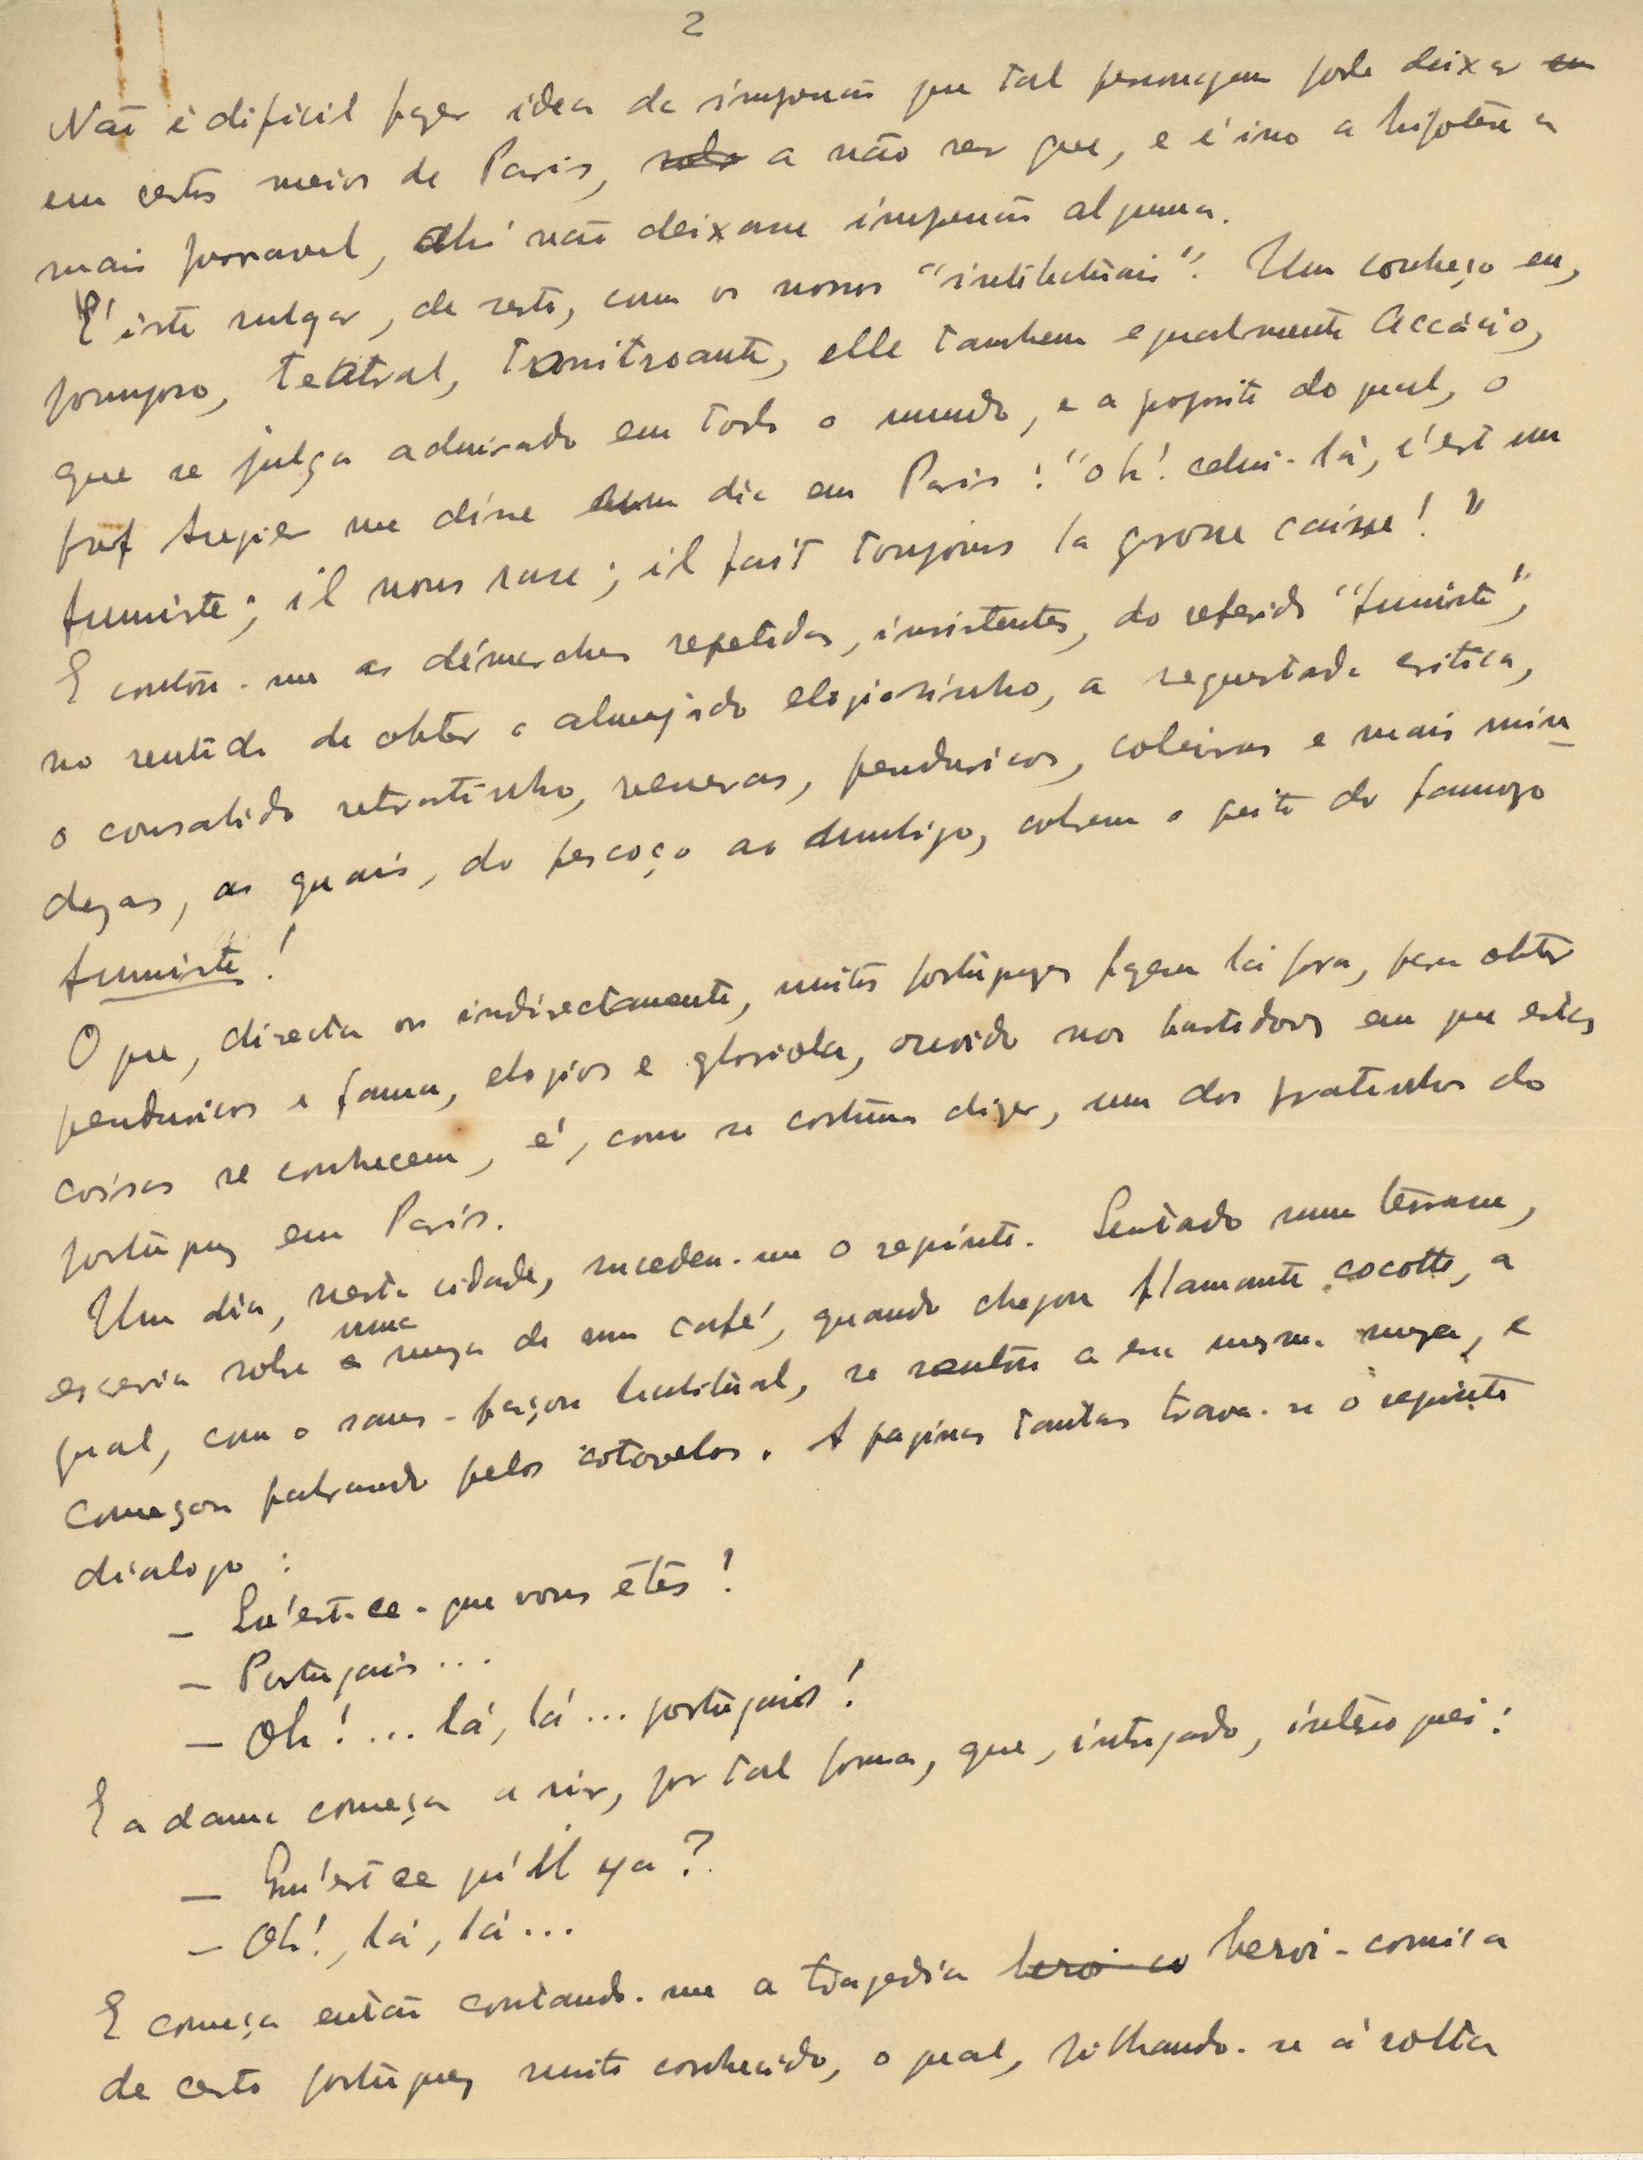 2
Não é dificil fazer idea da impressão que tal personagem pode deixar em
em certos meios de Paris, a não ser que, e é isso a hipotese a
mais provavel, ahi não deixasse impressão alguma.
É isto vulgar, de resto, com os nossos "intelectuais". Um conheço eu,
pomposo, teatral, tronitroante, elle tambem egualmente Accácio,
que se julga admirado em todo o mundo, e a proposito do qual, o
prof me disse num dia em Paris: "oh! celui-là, c'est un
fumiste; il nous rase; il fait toujours la grosse caisse!"
E contou-me as démarches repetidas, insistentes, do referido "fumiste",
no sentido de obter o almejado elogiosinho, a requestada critica,
o consabido retratinho, veneras, penduricos, coleiras e mais miu-
dezas, as quais, do pescoço ao umbigo, cobrem o peito do famozo
fumiste!
O que, directa ou indirectamente, muitos portuguezes fazem lá fora, para obter
penduricos e fama, elogios e gloriola, ouvido nos bastidores em que estas
coisas se conhecem, é, como se costuma dizer, um dos pratinhos do
portuguez em Paris.
Um dia, nesta cidade, sucedeu-me o seguinte. Sentado num terrasse,
escrevia sobre a uma meza de um café, quando chegou flamante cocotte, a
qual, com o sans-façon habitual, se sentou a essa mesma meza, e
começou palrando pelos cotovelos. A paginas tantas trava-se o seguinte
dialogo:
- Qu'est-ce-que vous êtes!
- Portugais...
- Oh!... lá, lá... portugais!
E a dama começa a rir, por tal forma, que, intrigado, interroguei:
- Qu'est ce qu'il ya?
- Oh!, lá, lá...
E começa então contando-me a tragedia heroi-co heroi-comica
de certo portuguez muito conhecido, o qual, pilhando-se á solta